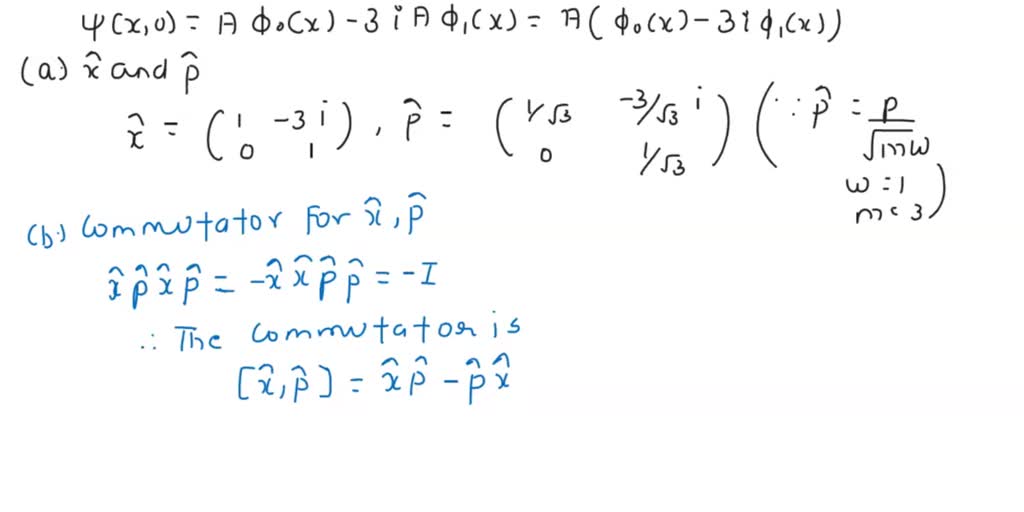 ψ(x,0) = A ϕ₀(x) - 3 i A ϕ₁(x) = A ( ϕ₀(x) - 3 i ϕ₁(x))
(a) x̂ and p̂
x̂ = ( 1 -3 i ) , p̂ = ( 1/√3 -3/√3 i ) ( ∵ p̂ = p/√mω
0 1 0 1/√3
ω = 1
m = 3 )
(b) Commutator for x̂, p̂
x̂ p̂ x̂ p̂ = -x̂ x̂ p̂ p̂ = - I
∴ The commutator is
[x̂, p̂] = x̂ p̂ - p̂ x̂